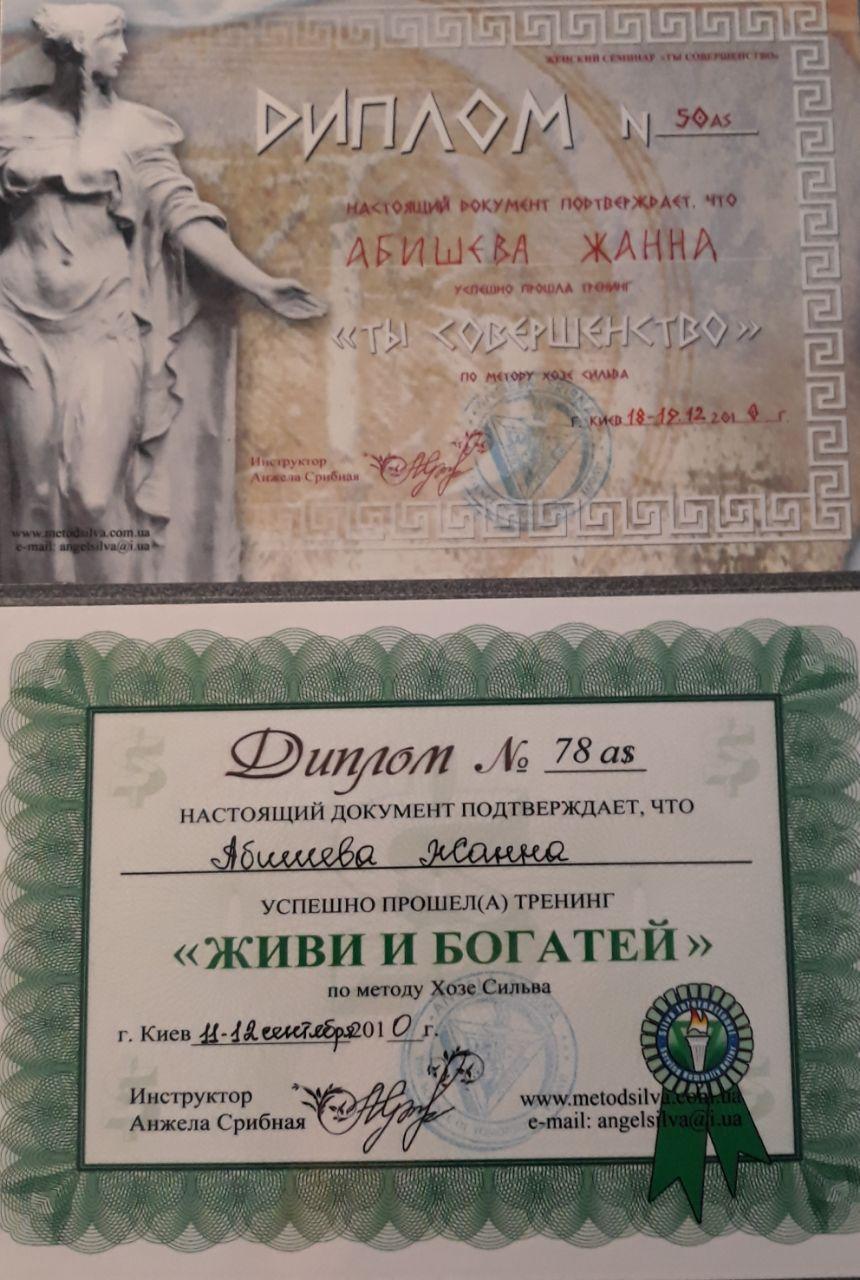 ЖЕНСКИЙ СЕМИНАР «ТЫ СОВЕРШЕНСТВО»
ДИПЛОМ N 50AS
НАСТОЯЩИЙ ДОКУМЕНТ ПОДТВЕРЖДАЕТ, ЧТО
АБИШЕВА ЖАННА
УСПЕШНО ПРОШЛА ТРЕНИНГ
«ТЫ СОВЕРШЕНСТВО»
ПО МЕТОДУ ХОЗЕ СИЛЬВА
Г. КИЕВ 18-19.12 2010 Г.
Инструктор
Анжела Срибная
www.metodsilva.com.ua
e-mail: angelsilva@i.ua
Диплом № 78 as
НАСТОЯЩИЙ ДОКУМЕНТ ПОДТВЕРЖДАЕТ, ЧТО
Абишева Жанна
УСПЕШНО ПРОШЕЛ(А) ТРЕНИНГ
«ЖИВИ И БОГАТЕЙ»
по методу Хозе Сильва
г. Киев 11-12 сентября 2010 г.
Инструктор
Анжела Срибная
www.metodsilva.com.ua
e-mail: angelsilva@i.ua